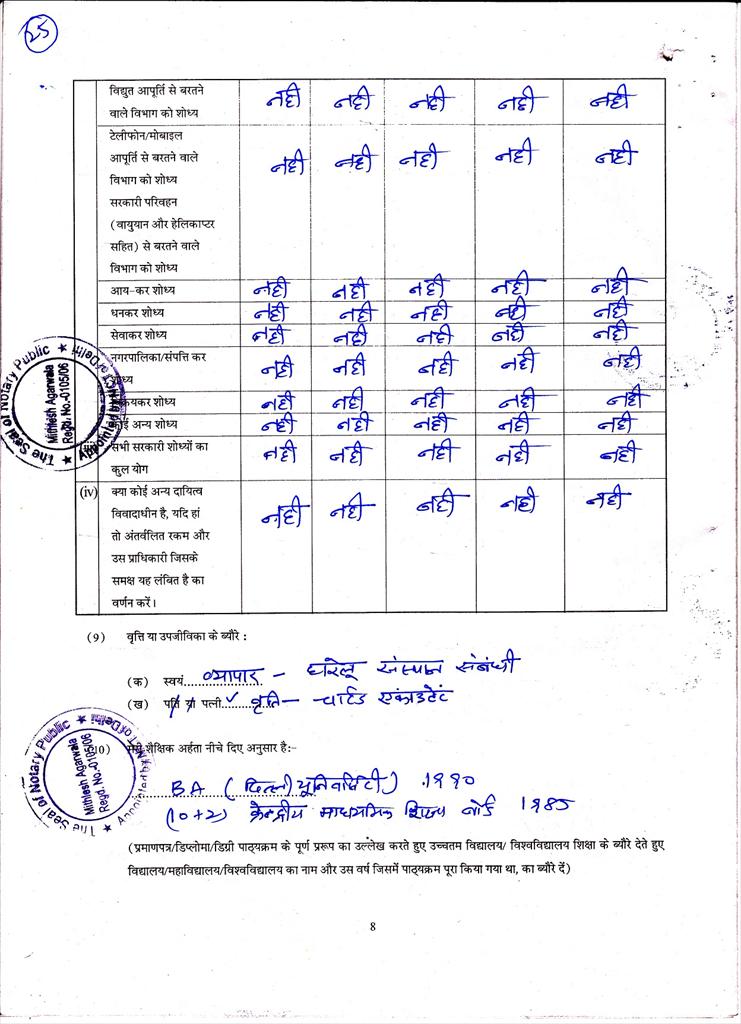 25
विद्युत आपूर्ति से बरतने
वाले विभाग को शोध्य
नही नही नही नही नही
टेलीफोन/मोबाइल
आपूर्ति से बरतने वाले
विभाग को शोध्य
नही नही नही नही नही
सरकारी परिवहन
(वायुयान और हेलिकाप्टर
सहित) से बरतने वाले
विभाग को शोध्य
आय-कर शोध्य नही नही नही नही नही
धनकर शोध्य नही नही नही नही नही
सेवाकर शोध्य नही नही नही नही नही
नगरपालिका/संपत्ति कर
शोध्य
नही नही नही नही नही
शोध्य नही नही नही नही नही
कोई अन्य शोध्य नही नही नही नही नही
सभी सरकारी शोध्यों का
कुल योग
नही नही नही नही नही
(iv) क्या कोई अन्य दायित्व
विवादाधीन है, यदि हां
तो अंतर्वलित रकम और
उस प्राधिकारी जिसके
समक्ष यह लंबित है का
वर्णन करें।
नही नही नही नही नही
(9) वृत्ति या उपजीविका के ब्यौरे :
(क) स्वयं व्यापार - घरेलू संस्थान संबंधी
(ख) पति या पत्नी ✓ वृति - चार्टड एकाउटेंट
The Seal of Notary Public ★
Mithlesh Agarwala
Regd. No.-0105/06
10) मेरी शैक्षिक अर्हता नीचे दिए अनुसार है:-
BA (दिल्ली यूनिवर्सिटी) 1990
(10+2) केन्द्रीय माध्यमिक शिक्षा बोर्ड 1985
The Seal of Notary Public ★
Mithlesh Agarwala
Regd. No.-0105/06
(प्रमाणपत्र/डिप्लोमा/डिग्री पाठ्यक्रम के पूर्ण प्ररूप का उल्लेख करते हुए उच्चतम विद्यालय/ विश्वविद्यालय शिक्षा के ब्यौरे देते हुए
विद्यालय/महाविद्यालय/विश्वविद्यालय का नाम और उस वर्ष जिसमें पाठ्यक्रम पूरा किया गया था, का ब्यौरे दें)
8